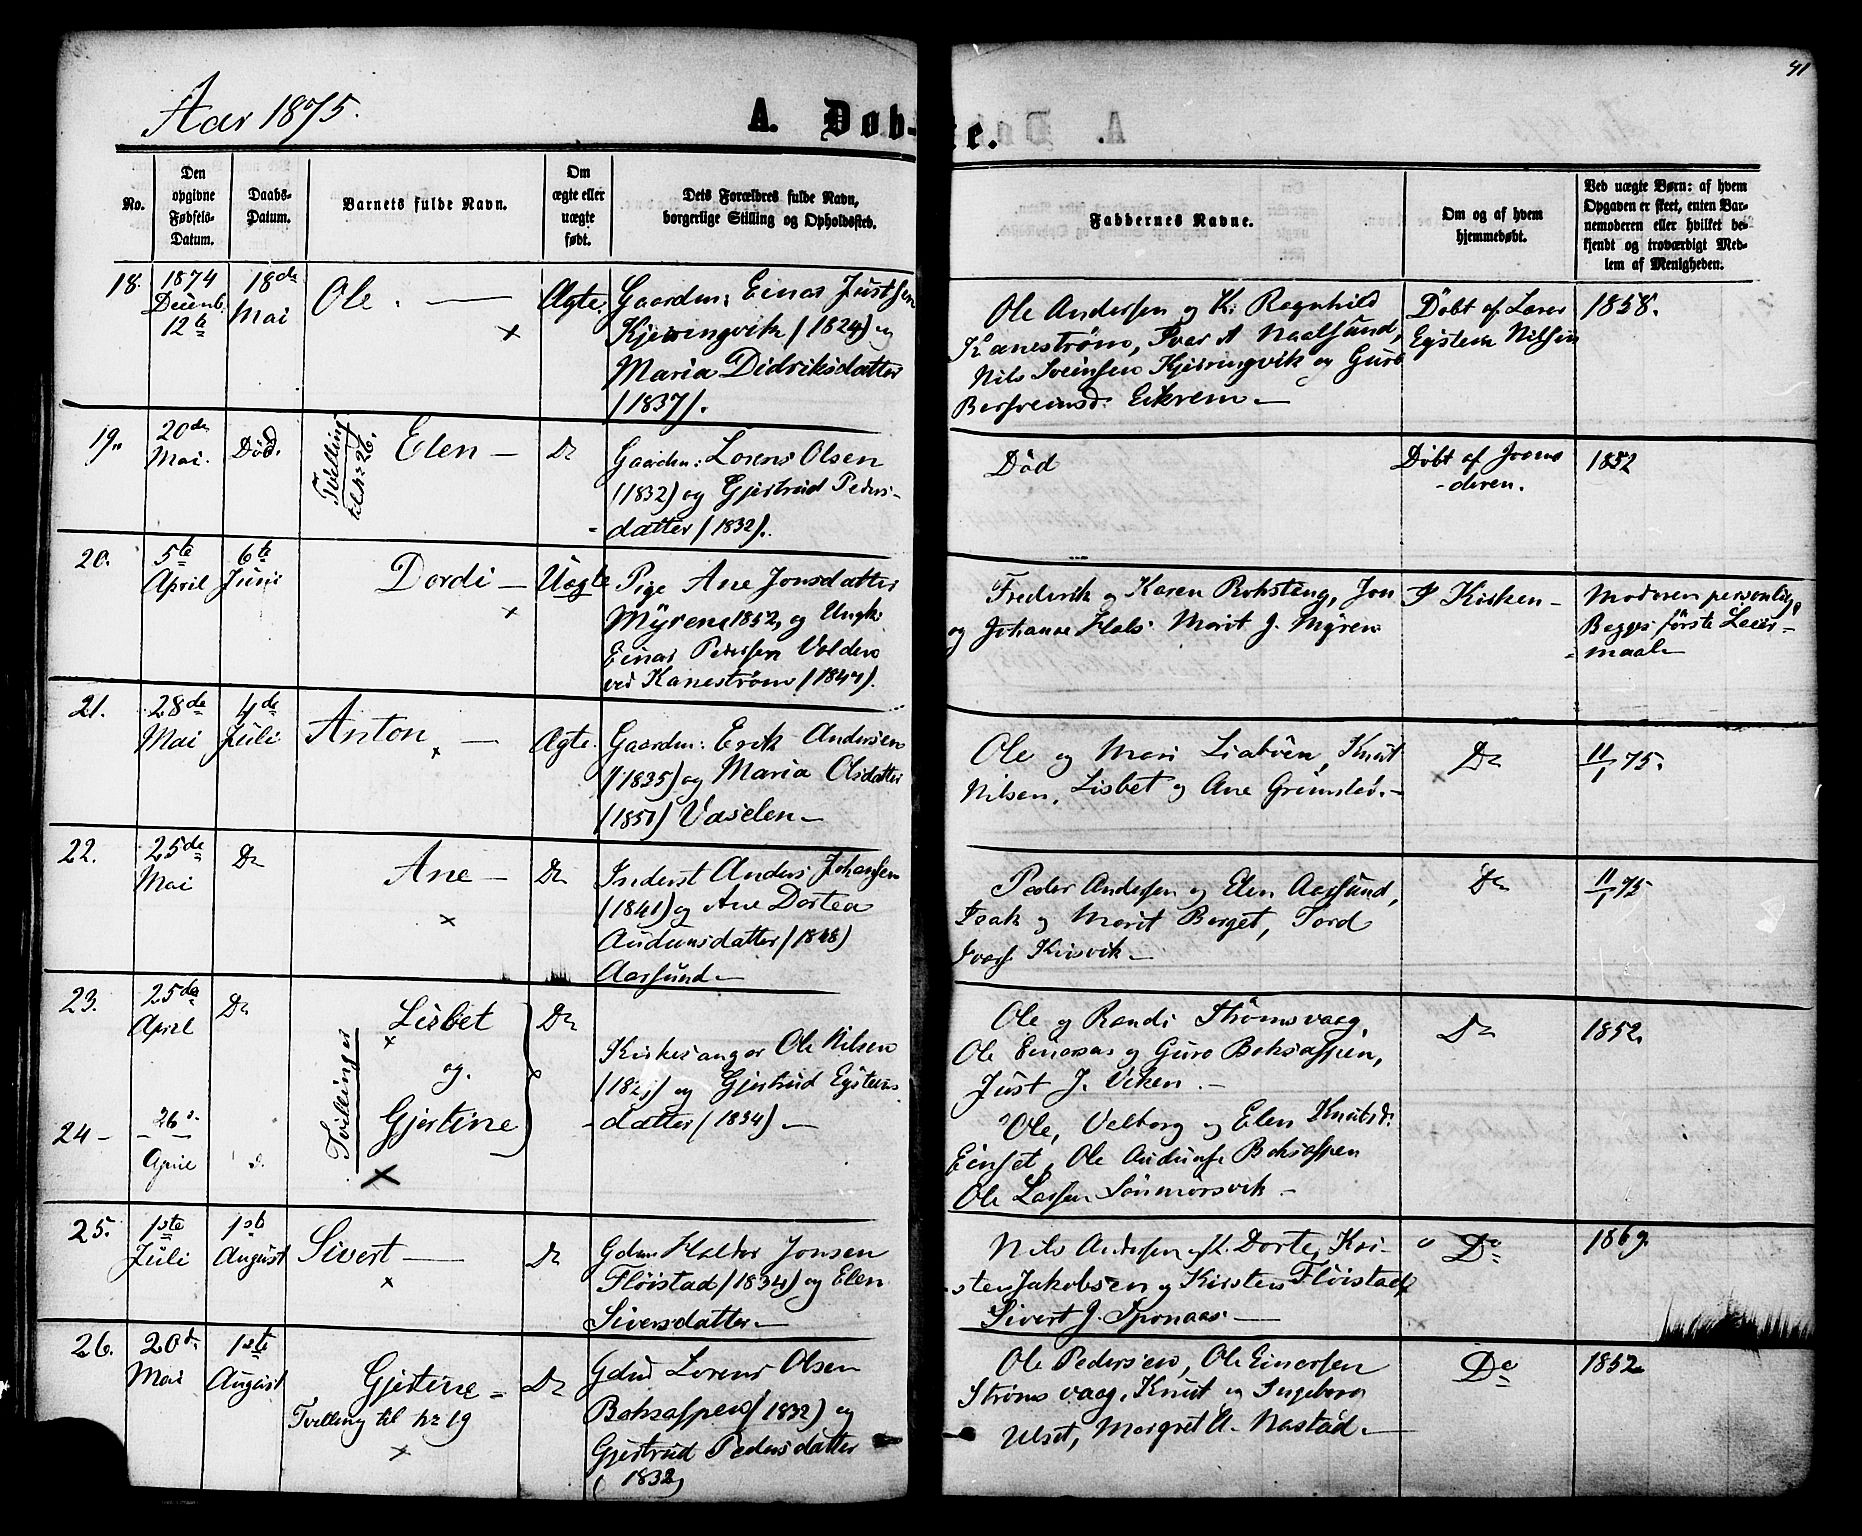 Aar 1875.
A. Døb-
te.
41
No.
Den
opgivne
Fødsels-
Datum.
Daabs-
Datum.
Barnets fulde Navn.
Om
ægte eller
uægte
født.
Dets Forældres fulde Navn,
borgerlige Stilling og Opholdssted.
Faddernes Navne.
Om og af hvem
hjemmedøbt.
Ved uægte Børn: af hvem
Opgaven er skeet, enten Bar-
nemoderen eller hvilket be-
kjendt og troværdigt Med-
lem af Menigheden.
18.
1874
Decemb.
12te
18de
Mai
Ole. —
Ægte.
Gaardm: Einar Justsen
Kjerringvik (1824) og
Maria Didriksdatter
(1837).
Ole Andersen og K. Ragnhild
Kanestrøm, Ivar A Naalsund,
Nils Sveinsen Kjerringvik og Guro
Bersveinsd. Eikrem. —
Døbt af Lærer
Eystein Nilsen
1858.
19.
20de
Mai.
Død.
Tvilling
til No 26.
Elen —
Do
Gaardm: Lorens Olsen
(1832) og Gjertrud Peders-
datter (1832).
Død
Døbt af Jorde-
-deren.
1852
20.
5te
April
6te
Juni
Dordi —
Uægte
Pige Ane Jonsdatter
Myren 1852, og Ungk.
Einar Pedersen Volden
ved Kanestrøm (1847).
Frederik og Karen Rokstang, Jon
og Johanne Hals. Marit J. Myren
I Kirken —
Moderen personlig,
Begges første Leier-
maal.
21.
28de
Mai
4de
Juli
Anton —
Ægte.
Gaardm: Erik Andersen
(1835) og Maria Olsdatter
(1851) Vaselen —
Ole og Mari Liabøen, Knut
Nilsen, Lisbet og Ane Grimsled. —
Do
11/1 75.
22.
25de
Mai
Do
Ane —
Do
Inderst Anders Johansen
(1841) og Ane Dortea
Audunsdatter (1848)
Aarsund —
Peder Andersen og Elen Aarsund,
Isak og Marit Berget, Tord
Ivars Kirsvik —
Do
11/1 75
23.
25de
April
Do
Lisbet
og
Tvillinger
Do
Kirkesanger Ole Nilsen
og Gjertrud Eysteins-
datter (1834) —
Ole og Randi Strømsvaag,
Ole Einarsen og Guro Boksaspen,
Just J. Viken. —
Do
1852.
24 —
26
April
Gjertine
Ole, Velborg og Elen Knutsd.
Einset, Ole Auduns Boksaspen
Ole Larsen Sönmörsvik —
25.
1ste
Juli
1ste
August
Sivert —
Do
Gdm. Haldor Jonsen
Fløistad (1834) og Elen
Siversdatter —
Nils Andersen og Dorte, Kri-
sten Jakobsen og Kirsten Fløistad,
Sivert J. Sponaas —
Do
1869.
26.
20de
Mai
1ste
August
Gjertine —
Tvilling til No 19
Do
Gdm Lorens Olsen
Boksaspen (1832) og
Gjertrud Pedersdatter
(1832)
Ole Pedersen, Ole Einarsen
Strømsvaag, Knut og Ingeborg
Ulset, Margret A. Nastad. —
Do
1852